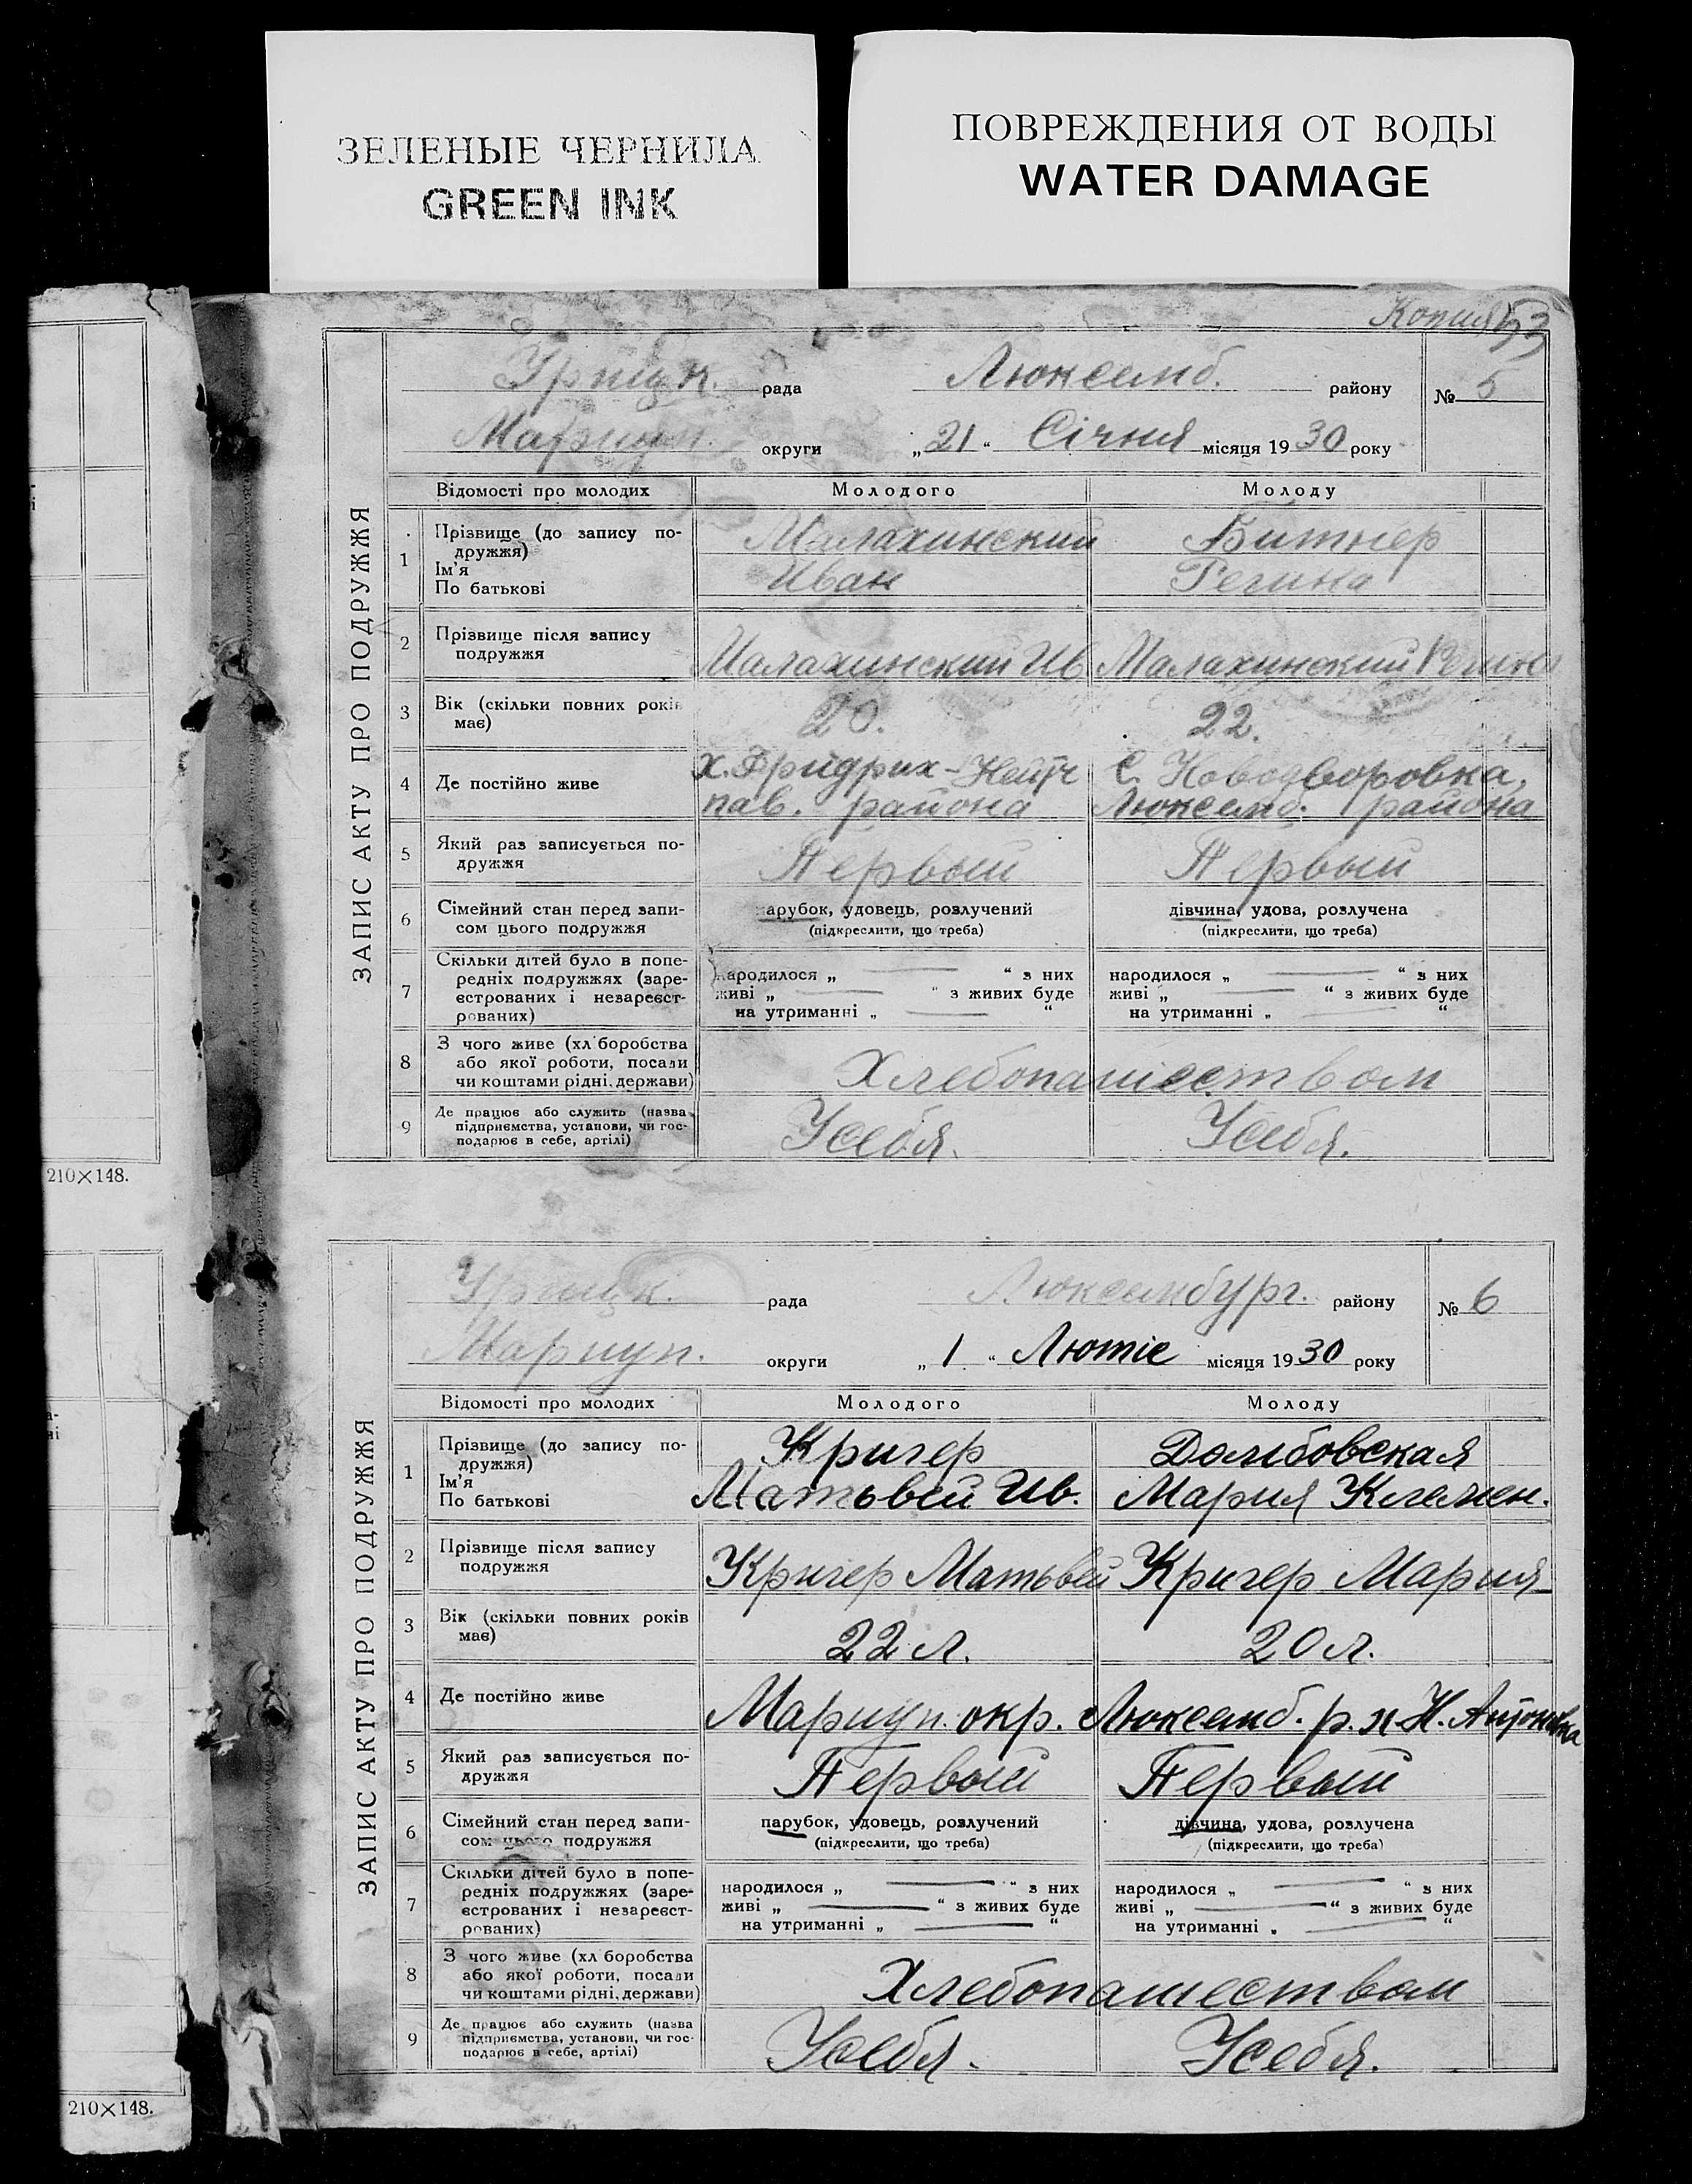 ЗЕЛЕНЫЕ ЧЕРНИЛА
GREEN INK
ПОВРЕЖДЕНИЯ ОТ ВОДЫ
WATER DAMAGE
Копия 53
ЗАПИС АКТУ ПРО ПОДРУЖЖЯ
Урицк. рада Люксемб. району № 5
Мариуп. округи „21“ Січня місяця 1930 року
Відомості про молодих Молодого Молоду
1 Прізвище (до запису по-
дружжя) Малахинский Битнер
Ім'я Иван Регина
По батькові
2 Прізвище після запису
подружжя Малахинский Ив Малахинский
3 Вік (скільки повних років
має) 20. 22.
4 Де постійно живе Х. Фридрих- С. Новодворовка,
пав. района Люксемб. района
5 Який раз записується по-
дружжя Первый Первый
6 Сімейний стан перед запи- парубок, удовець, розлучений дівчина, удова, розлучена
сом цього подружжя (підкреслити, що треба) (підкреслити, що треба)
7 Скільки дітей було в попе-
редніх подружжях (заре- народилося „ — “ з них народилося „ — “ з них
єстрованих і незареєст- живі „ — “ з живих буде живі „ — “ з живих буде
рованих) на утриманні „ — “ на утриманні „ — “
8 З чого живе (хліборобства
або якої роботи, посади Хлебопашеством
чи коштами рідні, держави)
9 Де працює або служить (назва
підприємства, установи, чи гос- Усебя. Усебя.
подарює в себе, артілі)
210×148.
ЗАПИС АКТУ ПРО ПОДРУЖЖЯ
Урицк. рада Люксембург. району № 6
Мариуп. округи „1“ Лютіе місяця 1930 року
Відомості про молодих Молодого Молоду
1 Прізвище (до запису по-
дружжя) Кригер Домбовская
Ім'я
По батькові Матьвей Ив. Мария Клемен.
2 Прізвище після запису
подружжя Кригер Матьвей Кригер Мария
3 Вік (скільки повних років
має) 22 л. 20 л.
4 Де постійно живе Мариуп. окр. Люксемб. р. х Н.
5 Який раз записується по-
дружжя Первый Первый
6 Сімейний стан перед запи- парубок, удовець, розлучений дівчина, удова, розлучена
сом цього подружжя (підкреслити, що треба) (підкреслити, що треба)
7 Скільки дітей було в попе-
редніх подружжях (заре- народилося „ — “ з них народилося „ — “ з них
єстрованих і незареєст- живі „ — “ з живих буде живі „ — “ з живих буде
рованих) на утриманні „ — “ на утриманні „ — “
8 З чого живе (хліборобства
або якої роботи, посади Хлебопашеством
чи коштами рідні, держави)
9 Де працює або служить (назва
підприємства, установи, чи гос- Усебя. Усебя.
подарює в себе, артілі)
210×148.